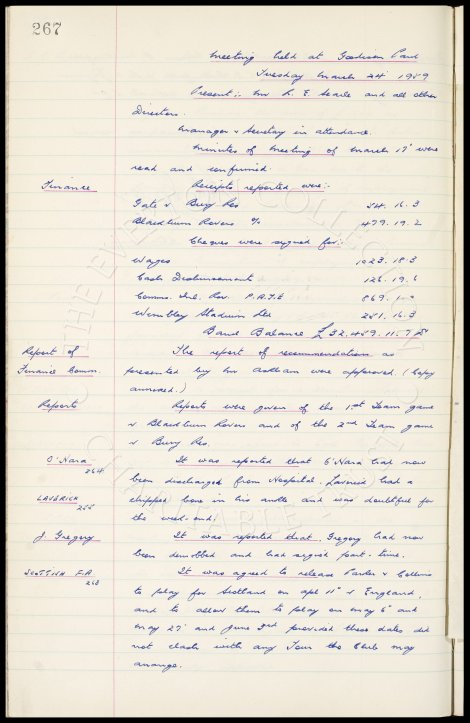 267
Meeting held at Goodison Park
Tuesday March 24' 1959
Present:- Mr R. E. Searle and all other
Directors.
Manager & Secretary in attendance.
Minutes of Meeting of March 17' were
read and confirmed.
Finance
Receipts reported were:-
Gate v. Bury Res 54. 16. 3
Blackburn Rovers % 479. 19. 2
Cheques were signed for:-
Wages 1023. 18. 3
Cash Disbursements 126. 19. 6
Comms. Inl. Rev. P.A.Y.E 869. 1-0
Wembley Stadium Ltd 251. 16. 3
Bank Balance £32,459. 11. 7
Report of
Finance Comm.
The report of recommendations as
presented by Mr were approved. (Copy
annexed.)
Reports
Reports were given of the 1st Team game
v Blackburn Rovers and of the 2nd Team game
v Bury Res.
O'Hara
264
It was reported that O'Hara had now
been discharged from Hospital. Laverick had a
LAVERICK
265
chipped bone in his ankle and was doubtful for
the week-end.
J. Gregory
It was reported that Gregory had now
been demobbed and had signed part-time.
SCOTTISH F.A
268
It was agreed to release Parker & Collins
to play for Scotland on Apl 11' v England,
and to allow them to play on May 6' and
May 27' and June 3rd provided these dates did
not clash with any Tour the Club may
arrange.
THE EVERTON COLLECTION
CHARITABLE TRUST